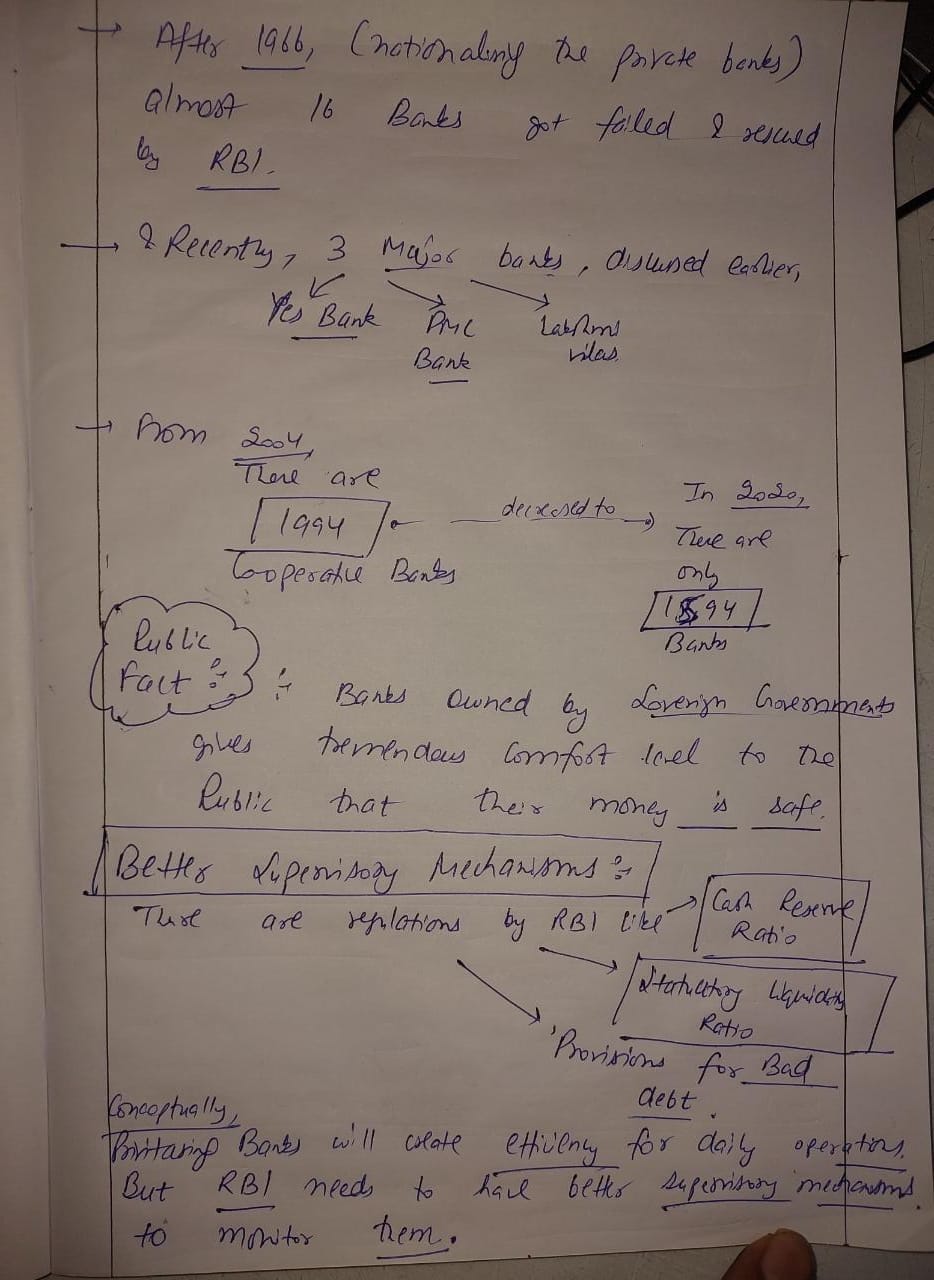 → After 1966, (nationalizing the private banks)
almost 16 Banks got failed & rescued
by RBI.
→ & Recently, 3 Major banks, discussed earlier,
Yes Bank PMC Bank Lakshmi Vilas
→ From 2004,
There are
1994
Cooperative Banks
decreased to
In 2020,
There are
only
1594
Banks
Public
Fact :-
:- Banks owned by Soverign Governments
gives tremendous comfort level to the
Public that their money is safe.
Better Supervisory Mechanisms :-
There are regulations by RBI like → Cash Reserve
Ratio
Statuatory Liquidity
Ratio
Provisions for Bad
debt.
Conceptually,
Banks will create efficiency for daily operations.
But RBI needs to have better supervisory mechanisms
to monitor them.